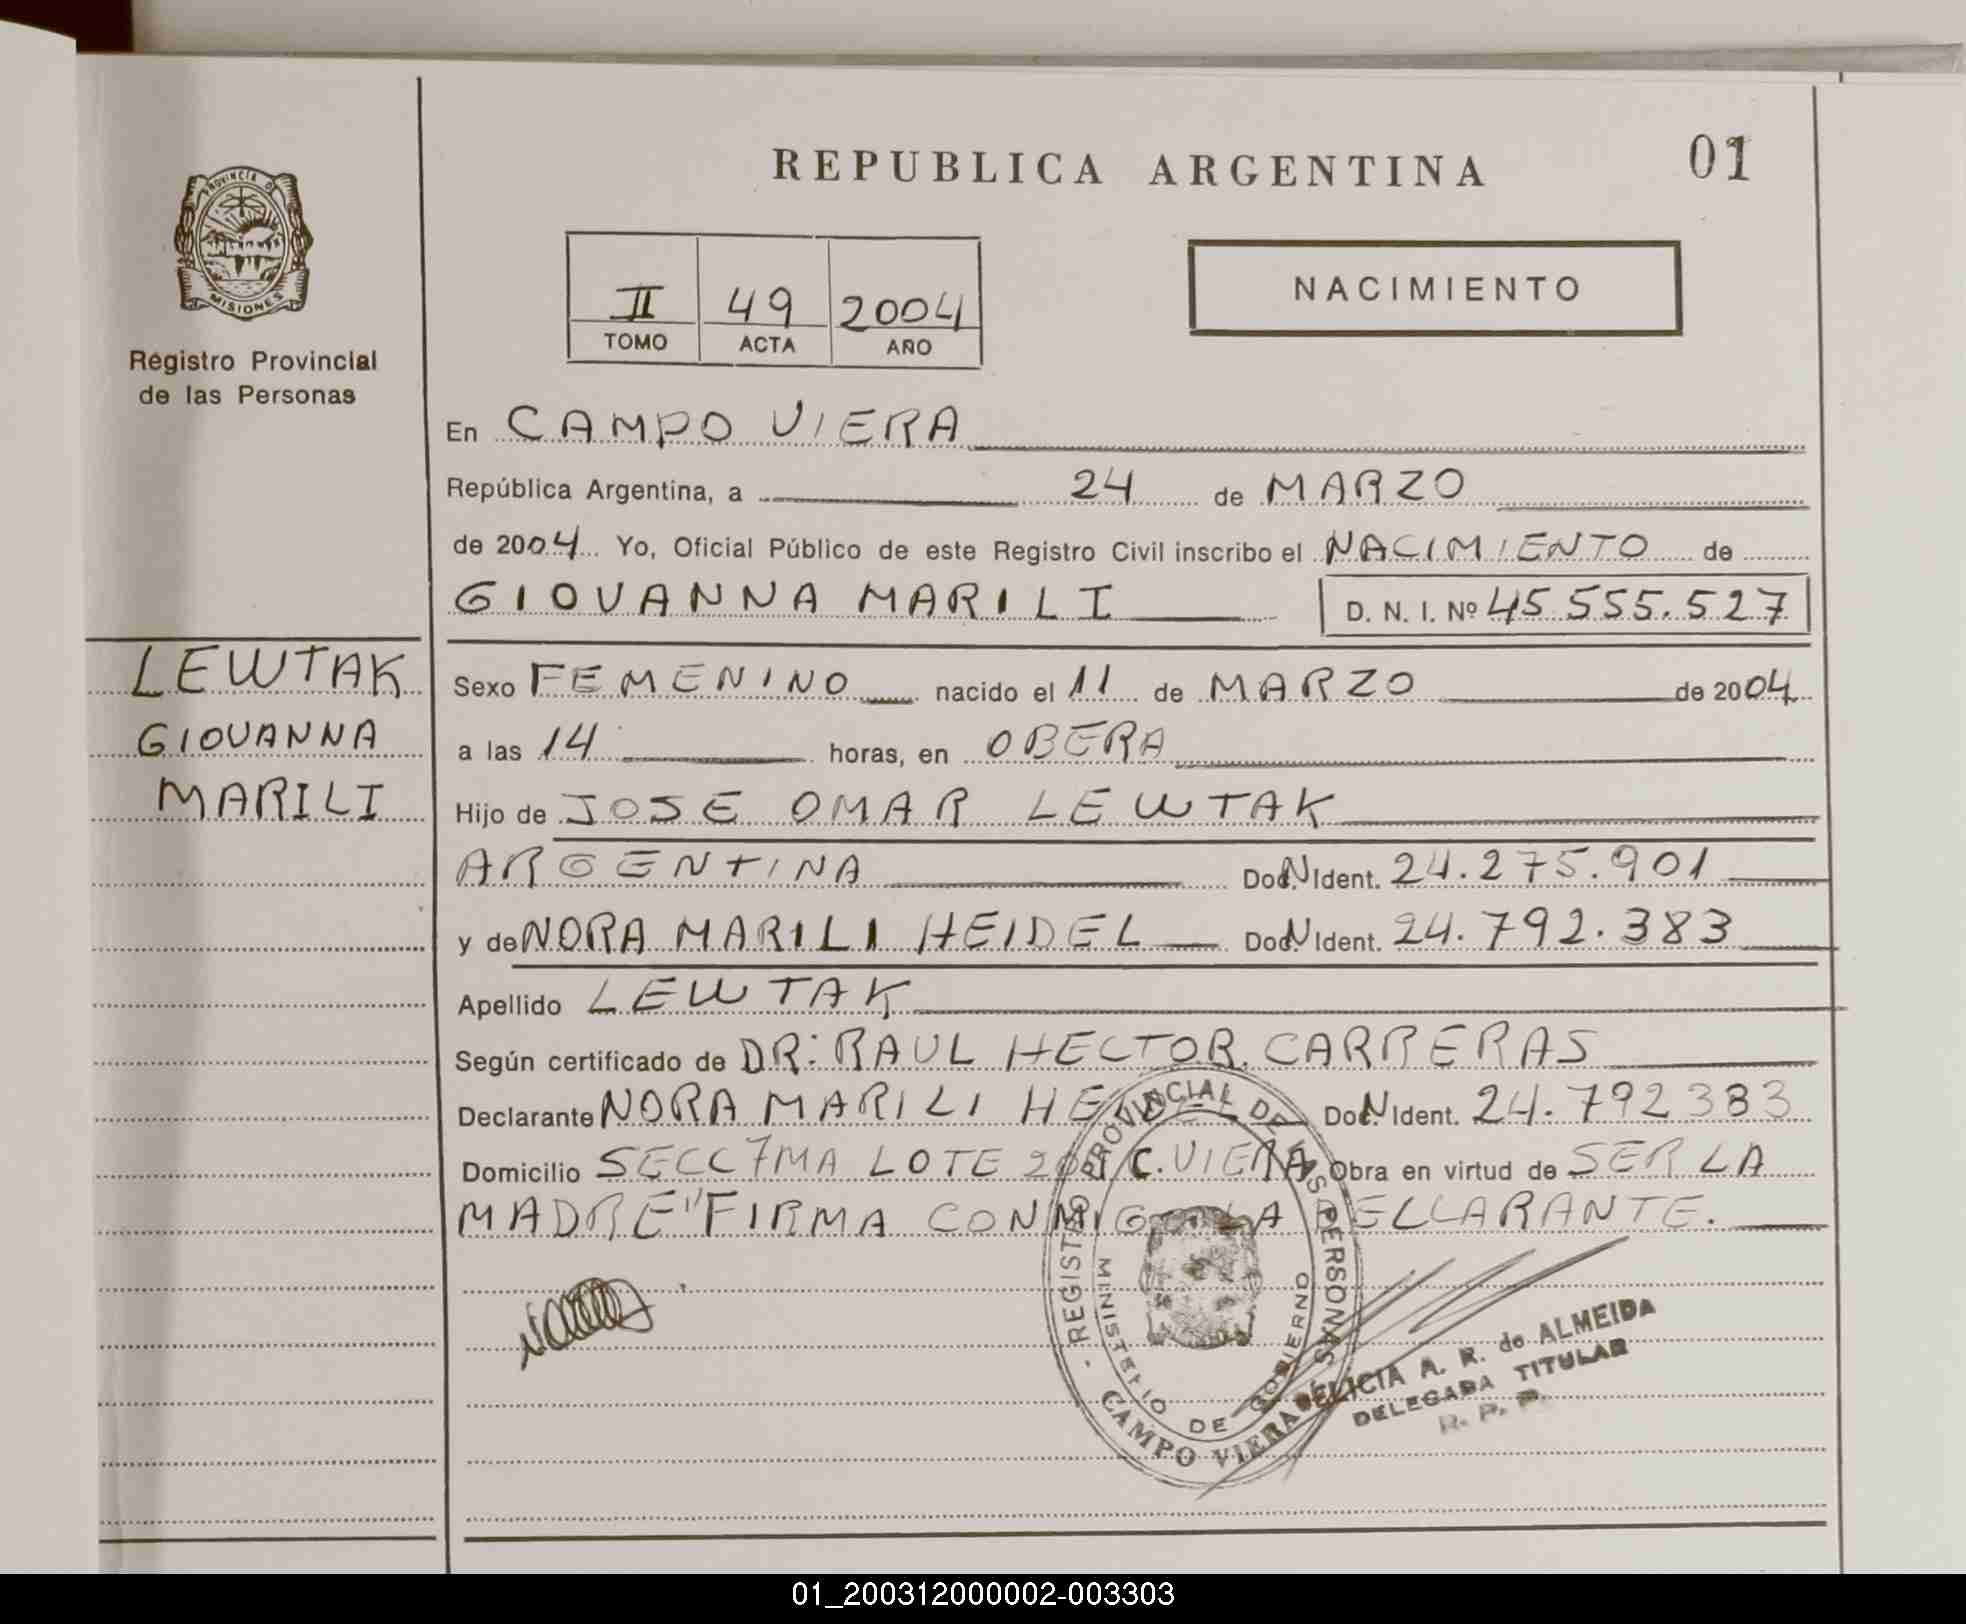 REPUBLICA ARGENTINA
01
PROVINCIA DE
MISIONES
Registro Provincial
de las Personas
II 49 2004
TOMO ACTA AÑO
NACIMIENTO
En CAMPO VIERA
República Argentina, a 24 de MARZO
de 2004 Yo, Oficial Público de este Registro Civil inscribo el NACIMIENTO de
GIOVANNA MARILI D. N. I. Nº 45.555.527
LEWTAK
GIOVANNA
MARILI
Sexo FEMENINO nacido el 11 de MARZO de 2004
a las 14 horas, en OBERA
Hijo de JOSE OMAR LEWTAK
ARGENTINA Doc. N Ident. 24.275.901
y de NORA MARILI HEIDEL Doc. N Ident. 24.792.383
Apellido LEWTAK
Según certificado de DR: RAUL HECTOR CARRERAS
Declarante NORA MARILI HEIDEL Doc. N Ident. 24.792383
Domicilio SECC 7MA LOTE C.VIERA Obra en virtud de SER LA
MADRE" FIRMA CONMIGO LA DELLARANTE.
- REGISTRO PROVINCIAL DE LAS PERSONAS -
MINISTERIO DE GOBIERNO
CAMPO VIERA
FELICIA A. R. de ALMEIDA
DELEGADA TITULAR
R. P. P.
01_200312000002-003303